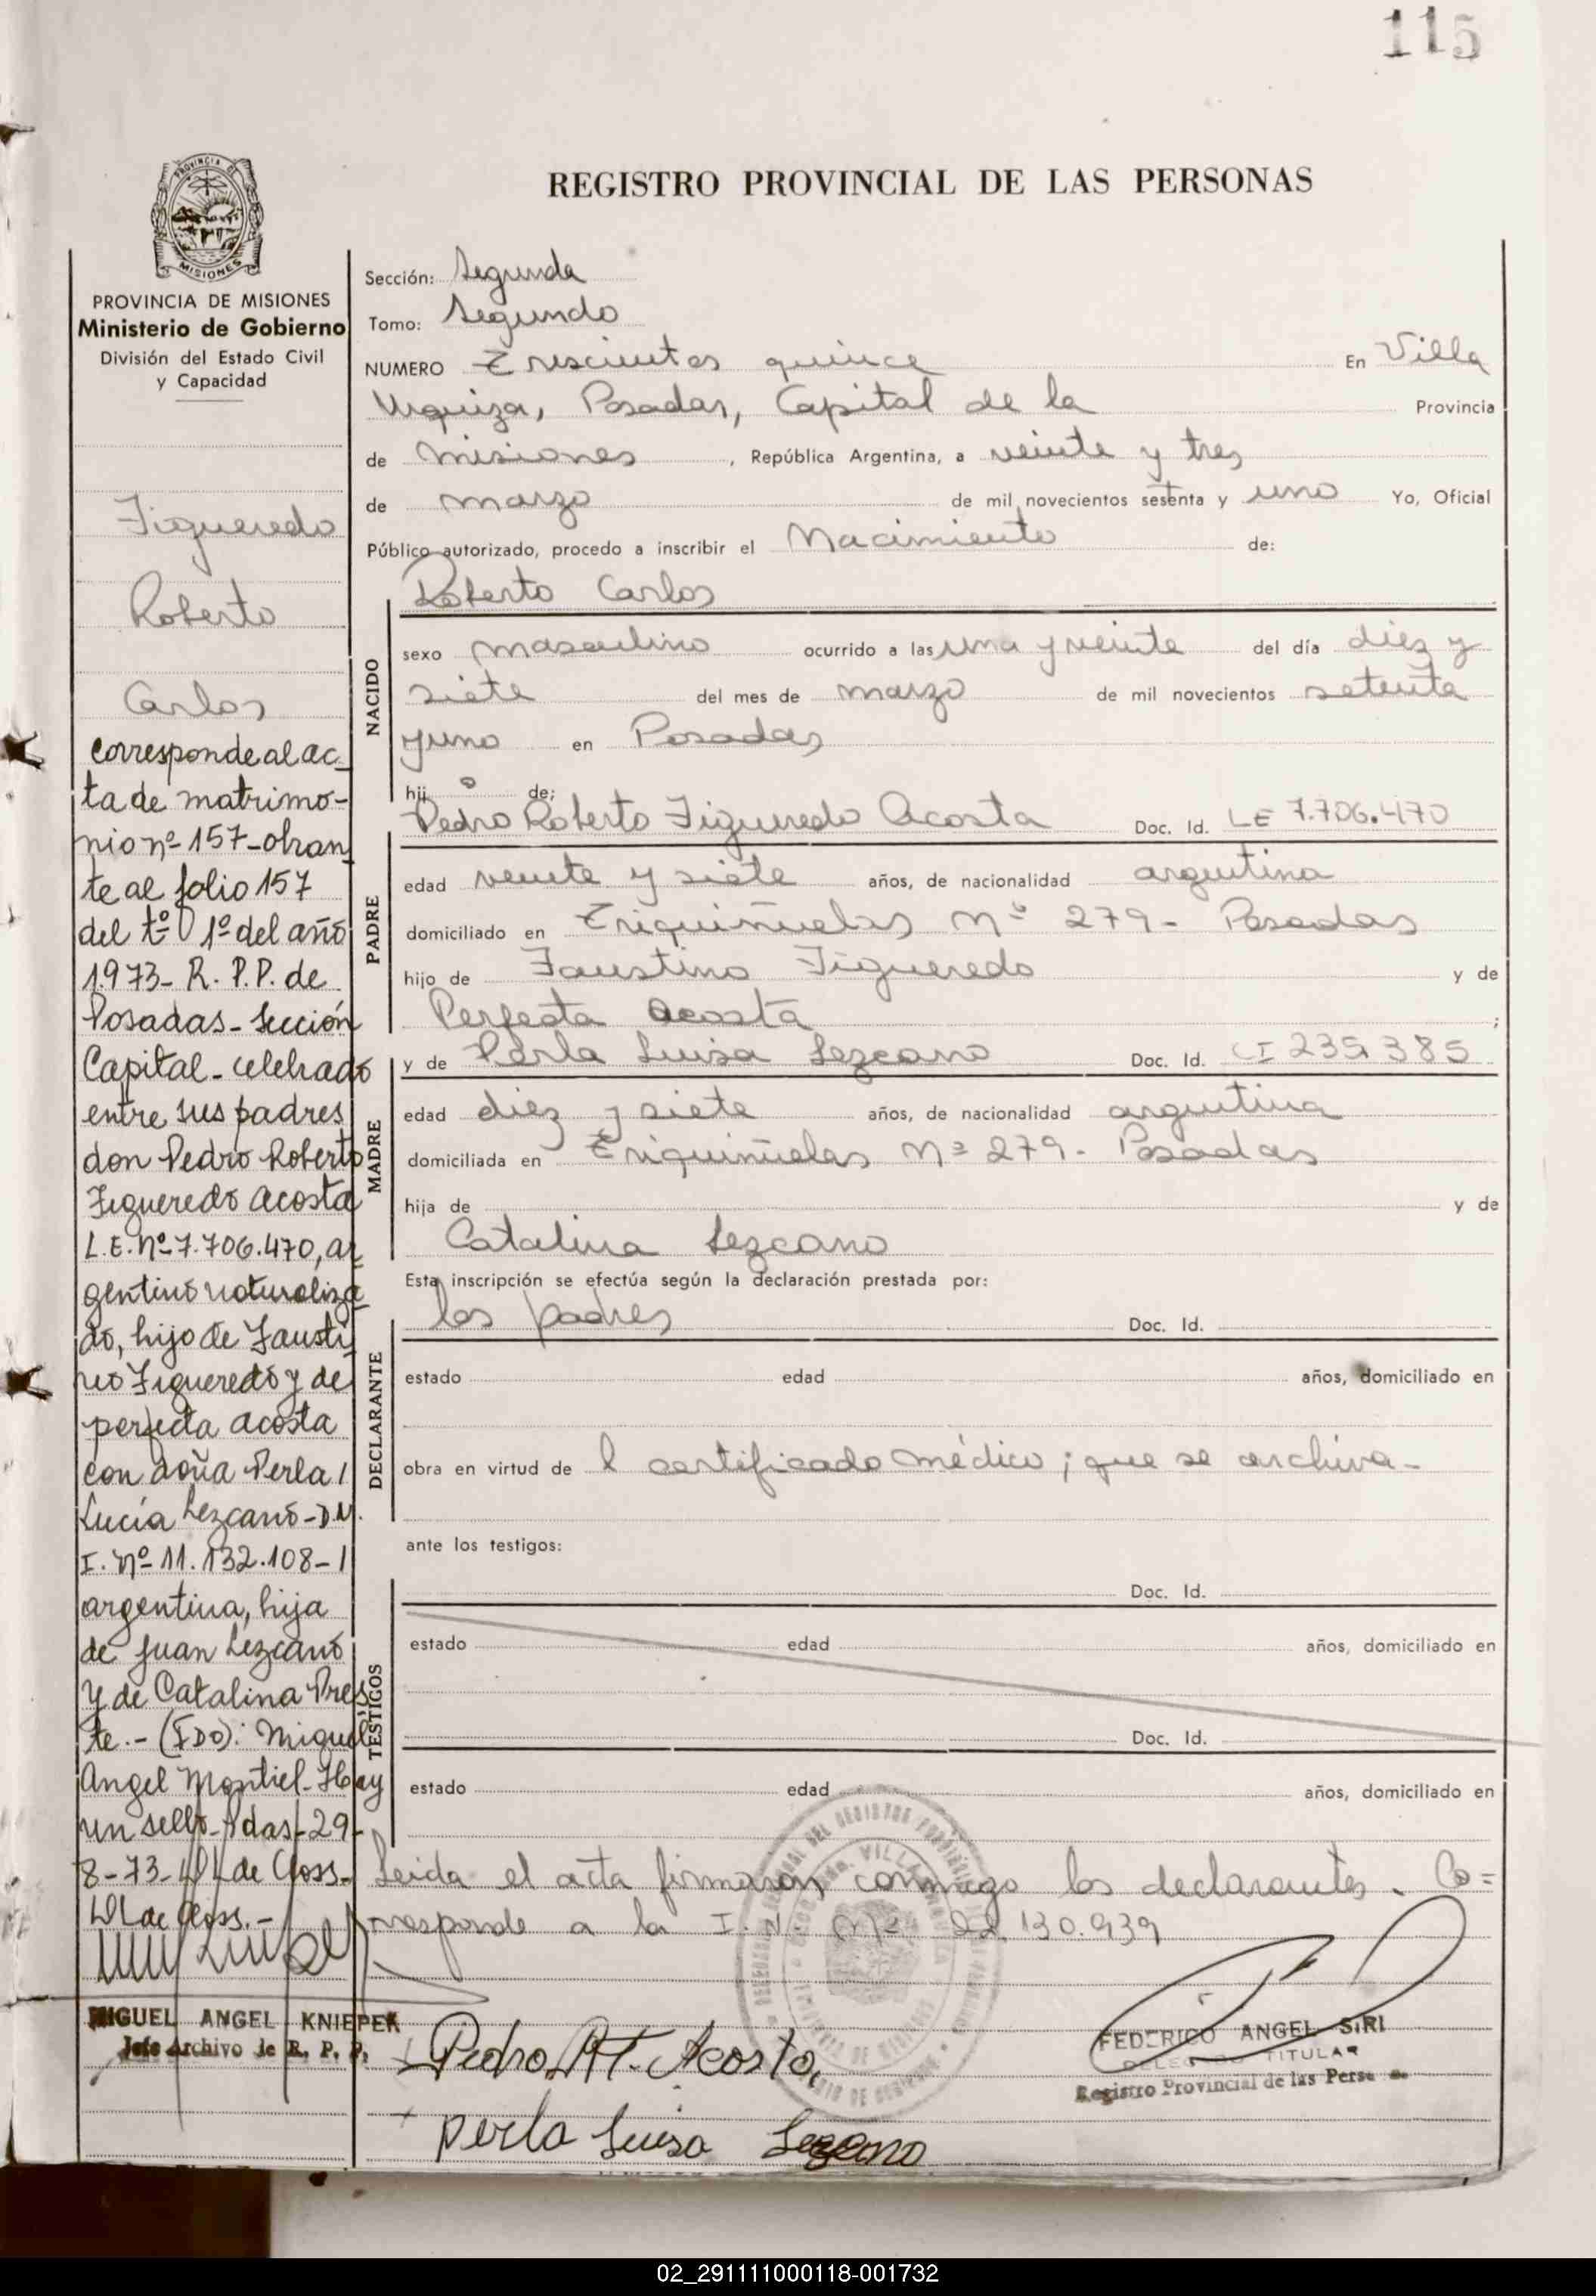 115
PROVINCIA DE
MISIONES
REGISTRO PROVINCIAL DE LAS PERSONAS
PROVINCIA DE MISIONES
Ministerio de Gobierno
División del Estado Civil
y Capacidad
Figueredo
Roberto
Carlos
corresponde al ac_
ta de matrimo-
nio nº 157-obran
te al folio 157
del tº 1º del año
1973- R. P.P. de
Posadas- Sección
Capital- celebrado
entre sus padres
don Pedro Roberto
Figueredo Acosta
L.E. Nº 7.706.470, ar
gentino naturaliza
do, hijo de Fausti
no Figueredo y de
perfecta acosta
con doña Perla
Lucía Lezcano-D.N.
I. nº 11.132.108-
argentina, hija
de Juan Lezcano
y de Catalina Pres
te.- (FDO): Miguel
Angel Montiel- Hay
un sello- Pdas-29-
8-73- de Closs.-
de Closs.-
MIGUEL ANGEL KNIEPER
Jefe Archivo de R. P. P.
Sección: Segunda
Tomo: Segundo
NUMERO Trescientos quince En Villa
Urquiza, Posadas, Capital de la Provincia
de Misiones, República Argentina, a veinte y tres
de marzo de mil novecientos sesenta y uno Yo, Oficial
Público autorizado, procedo a inscribir el Nacimiento de:
Roberto Carlos
NACIDO
sexo masculino ocurrido a las una y veinte del día diez y
siete del mes de marzo de mil novecientos setenta
y uno en Posadas
hij o de;
Pedro Roberto Figueredo Acosta Doc. Id. LE 7.706.470
PADRE
edad veinte y siete años, de nacionalidad argentina
domiciliado en Triquiñuelas Nº 279- Posadas
hijo de Faustino Figueredo y de
Perfecta Acosta ;
y de Perla Luisa Lezcano Doc. Id. CI 239385
MADRE
edad diez y siete años, de nacionalidad argentina
domiciliada en Triquiñuelas Nº 279- Posadas
hija de y de
Catalina Lezcano
Esta inscripción se efectúa según la declaración prestada por:
los padres Doc. Id.
DECLARANTE
estado edad años, domiciliado en
obra en virtud de l certificado médico; que se archiva-
ante los testigos:
Doc. Id.
TESTIGOS
estado edad años, domiciliado en
Doc. Id.
estado edad años, domiciliado en
Leida el acta firmaron conmigo los declarantes. Co=
rresponde a la I. N. Nº 22.130.939
FEDERICO ANGEL SIRI
DELEGADO TITULAR
Registro Provincial de las Perso
Pedro Acosta
perla Luisa Lezcano
02_291111000118-001732